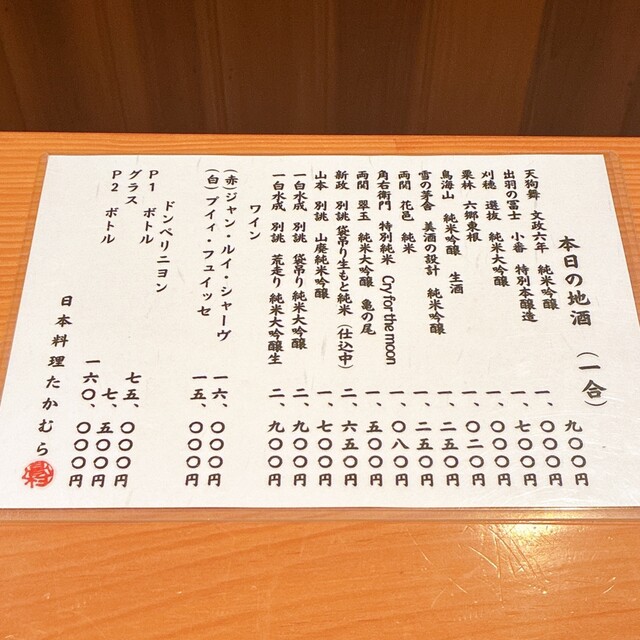 本日の地酒 (一合)
天狗舞 文政六年 純米吟醸 九〇〇円
出羽の冨士 小番 特別本醸造 一、〇〇〇円
刈穂 選抜 純米大吟醸 一、七〇〇円
栗林 六郷東根 一、〇〇〇円
鳥海山 純米吟醸 生酒 一、〇二〇円
雪の茅舎 美酒の設計 純米吟醸 一、二五〇円
両関 花邑 純米 一、二五〇円
角右衛門 特別純米 Cry for the moon 一、〇八〇円
両関 翠玉 純米大吟醸 亀の尾 一、五〇〇円
新政 別誂 袋吊り生もと純米 (仕込中) 二、六五〇円
山本 別誂 山廃純米吟醸 一、七〇〇円
一白水成 別誂 袋吊り純米大吟醸 二、九〇〇円
一白水成 別誂 荒走り 純米大吟醸生 二、九〇〇円
ワイン
(赤)ジャン・ルイ・シャーヴ 一六、〇〇〇円
(白)プイィ・フュイッセ 一五、〇〇〇円
ドンペリニヨン
P1 ボトル 七五、〇〇〇円
グラス 七、五〇〇円
P2 ボトル 一六〇、〇〇〇円
日本料理たかむら